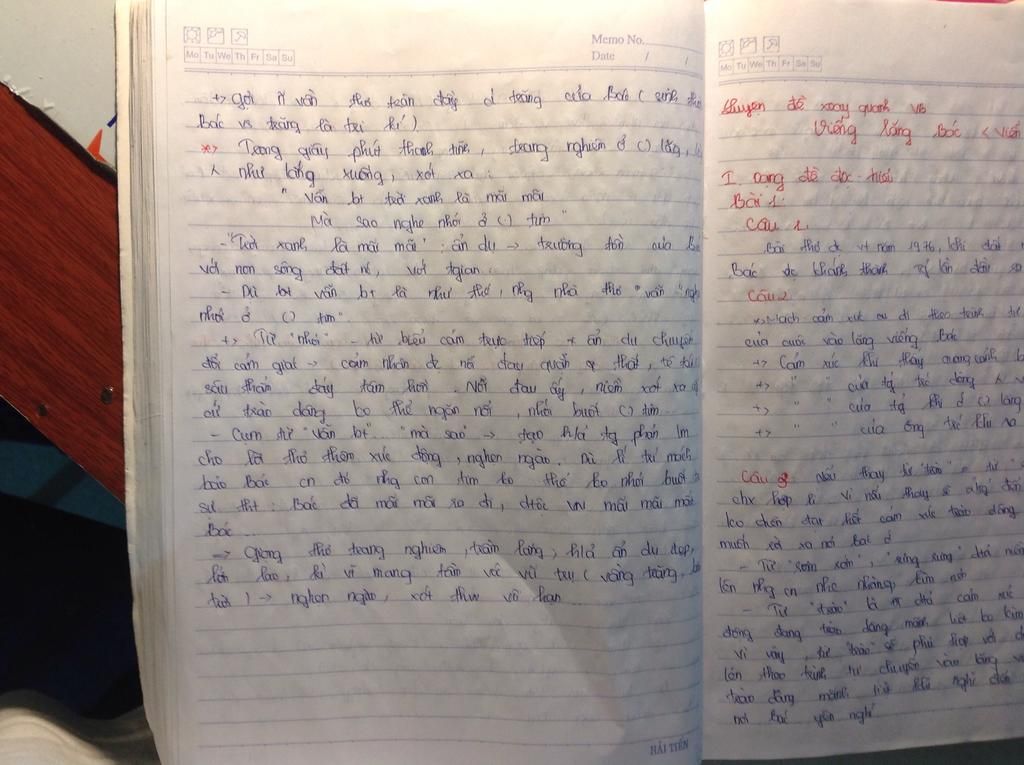 Mo Tu We Th Fr Sa Su
Memo No.
Date / /
+> gợi ý vần thơ tràn đầy á trăng của Bác (
Bác vs trăng là tri kỉ)
*> Trong giây phút thanh tĩnh, trang nghiêm ở () lăng,
như lắng xuống, xót xa :
" Vẫn bt trời xanh là mãi mãi
Mà sao nghe nhói ở () tim "
- "Trời xanh là mãi mãi" : ẩn dụ -> trường tồn của
với non sông đất nc, với tgian.
- Dù bt vẫn bt là như thế, nhg nhà thơ "vẫn "
nhói ở () tim"
+> Từ "nhói" - từ biểu cảm trực tiếp + ẩn dụ chuyển
đổi cảm giác -> cảm nhận đc nỗi đau quặn thắt, tê tái
sâu thẳm đáy tâm hồn. Nỗi đau ấy, niềm xót xa
cứ trào dâng ko thể ngăn nổi, nhói buốt () tim
- Cụm từ "vẫn bt" "mà sao" ->
cho lời thơ thêm xúc động, nghẹn ngào. Dù lí trí mách
bảo Bác cn đó nhg con tim ko thể ko nhói buốt
sự tht : Bác đã mãi mãi xa đi, dtộc VN mãi mãi mất
Bác ...
=> Giọng thơ trang nghiêm, trầm lắng, h/ả ẩn dụ đẹp,
lớn lao, kì vĩ mang tầm vóc vũ trụ ( vầng trăng,
trời ) -> nghẹn ngào, xót thw vô hạn
HẢI TIẾN
Mo Tu We Th Fr Sa Su
Luyện đề xoay quanh VB
Viếng lăng Bác <
I. Dạng đề đọc-hiểu
Bài 1:
Câu 1.
Bài thơ đc vt năm 1976, khi đất
Bác đc khánh thành lần đầu
Câu 2
*>Mạch cảm xúc đi theo trình tự
của cuộc vào lăng viếng Bác
+> Cảm xúc khi thấy quang cảnh
+> " " của tg trc dòng
+> " " của tg khi ở () lăng
+> " " của ông trc khi ra
Câu 3 Nếu thay từ "trào" = từ "
chx hợp lí vì nếu thay sẽ
ko diễn đạt hết cảm xúc trào dâng
muốn rời xa nơi Bác ở
- Từ " ", "rưng rưng"
lên nhg cn nhẹ nhàng, kìm nén
- Từ "trào" là tả cảm xúc
động đang trào dâng mãnh liệt ko kìm
Vì vậy, từ "trào" sẽ phù hợp với
lớn theo trình tự chuyến vào lăng
trào dâng mãnh liệt khi nghĩ đến
nơi Bác yên nghỉ